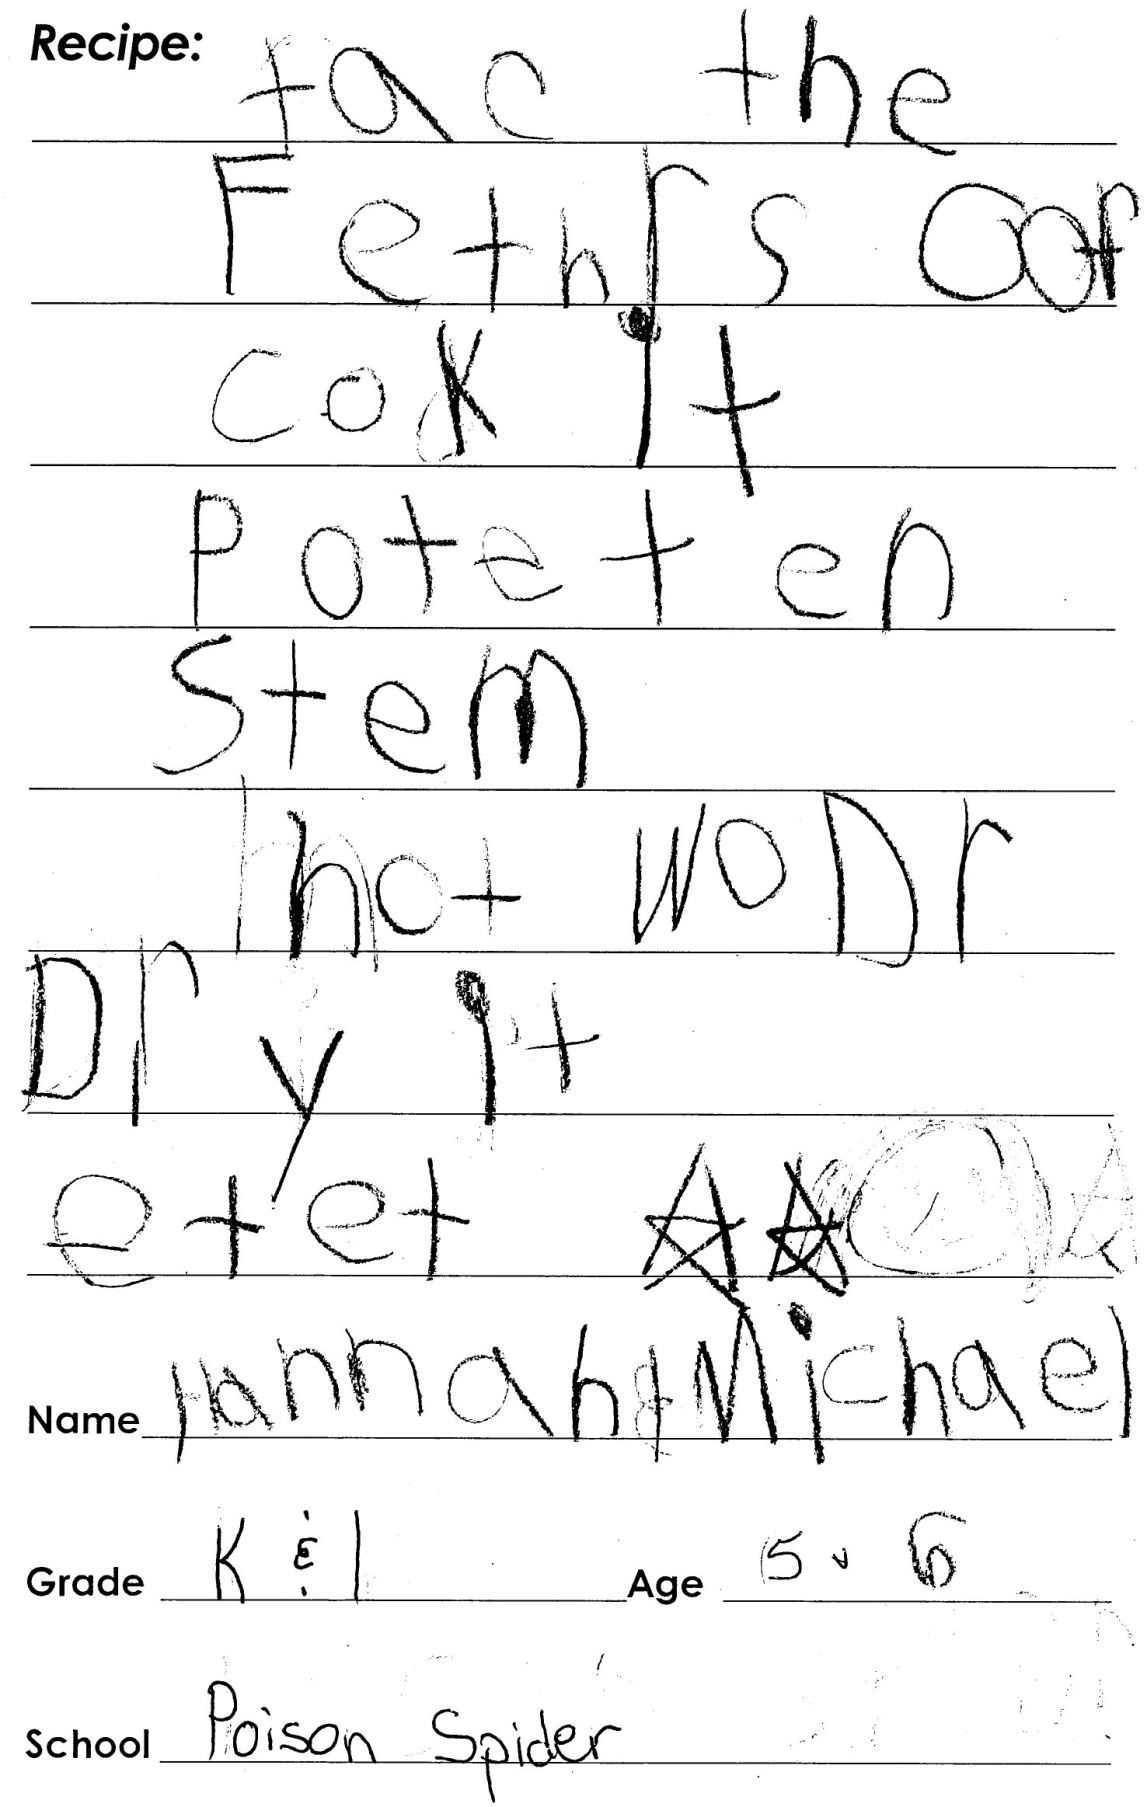 Recipe: tac the
Fethrs oof
cok it
Potet en
Stem
hot woDr
Dry it
etet
Name Hannah & Michael
Grade K & 1 Age 5 6
School Poison Spider